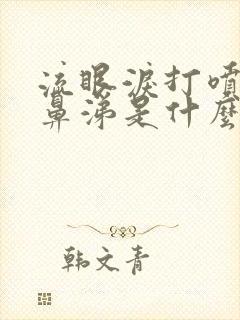 流眼淚打噴
鼻涕是什麼
韩文青